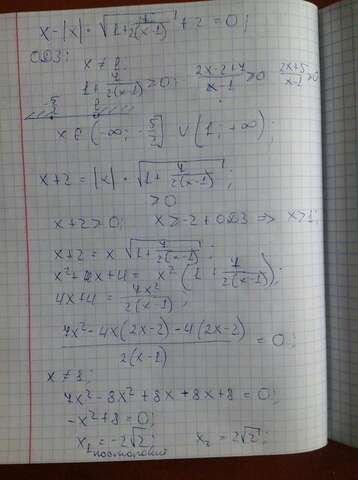 x - |x| · √(1 + 7/(2(x-1))) + 2 = 0;
ОДЗ:
x ≠ 1;
1 + 7/(2(x-1)) ≥ 0; (2x-2+7)/(x-1) ≥ 0 (2x+5)/(x-1) ≥ 0
-5/2 1
x ∈ (-∞; -5/2] ∪ (1; +∞);
x+2 = |x| · √(1 + 7/(2(x-1)));
≥ 0
x+2 ≥ 0; x ≥ -2 + ОДЗ ⇒ x > 1;
x+2 = x √(1 + 7/(2(x-1)));
x² + 4x + 4 = x² (1 + 7/(2(x-1)));
4x+4 = 7x²/(2(x-1));
(7x² - 4x(2x-2) - 4(2x-2))/(2(x-1)) = 0;
x ≠ 1;
7x² - 8x² + 8x + 8x + 8 = 0;
-x² + 8 = 0;
x₁ = -2√2; x₂ = 2√2;
посторонний